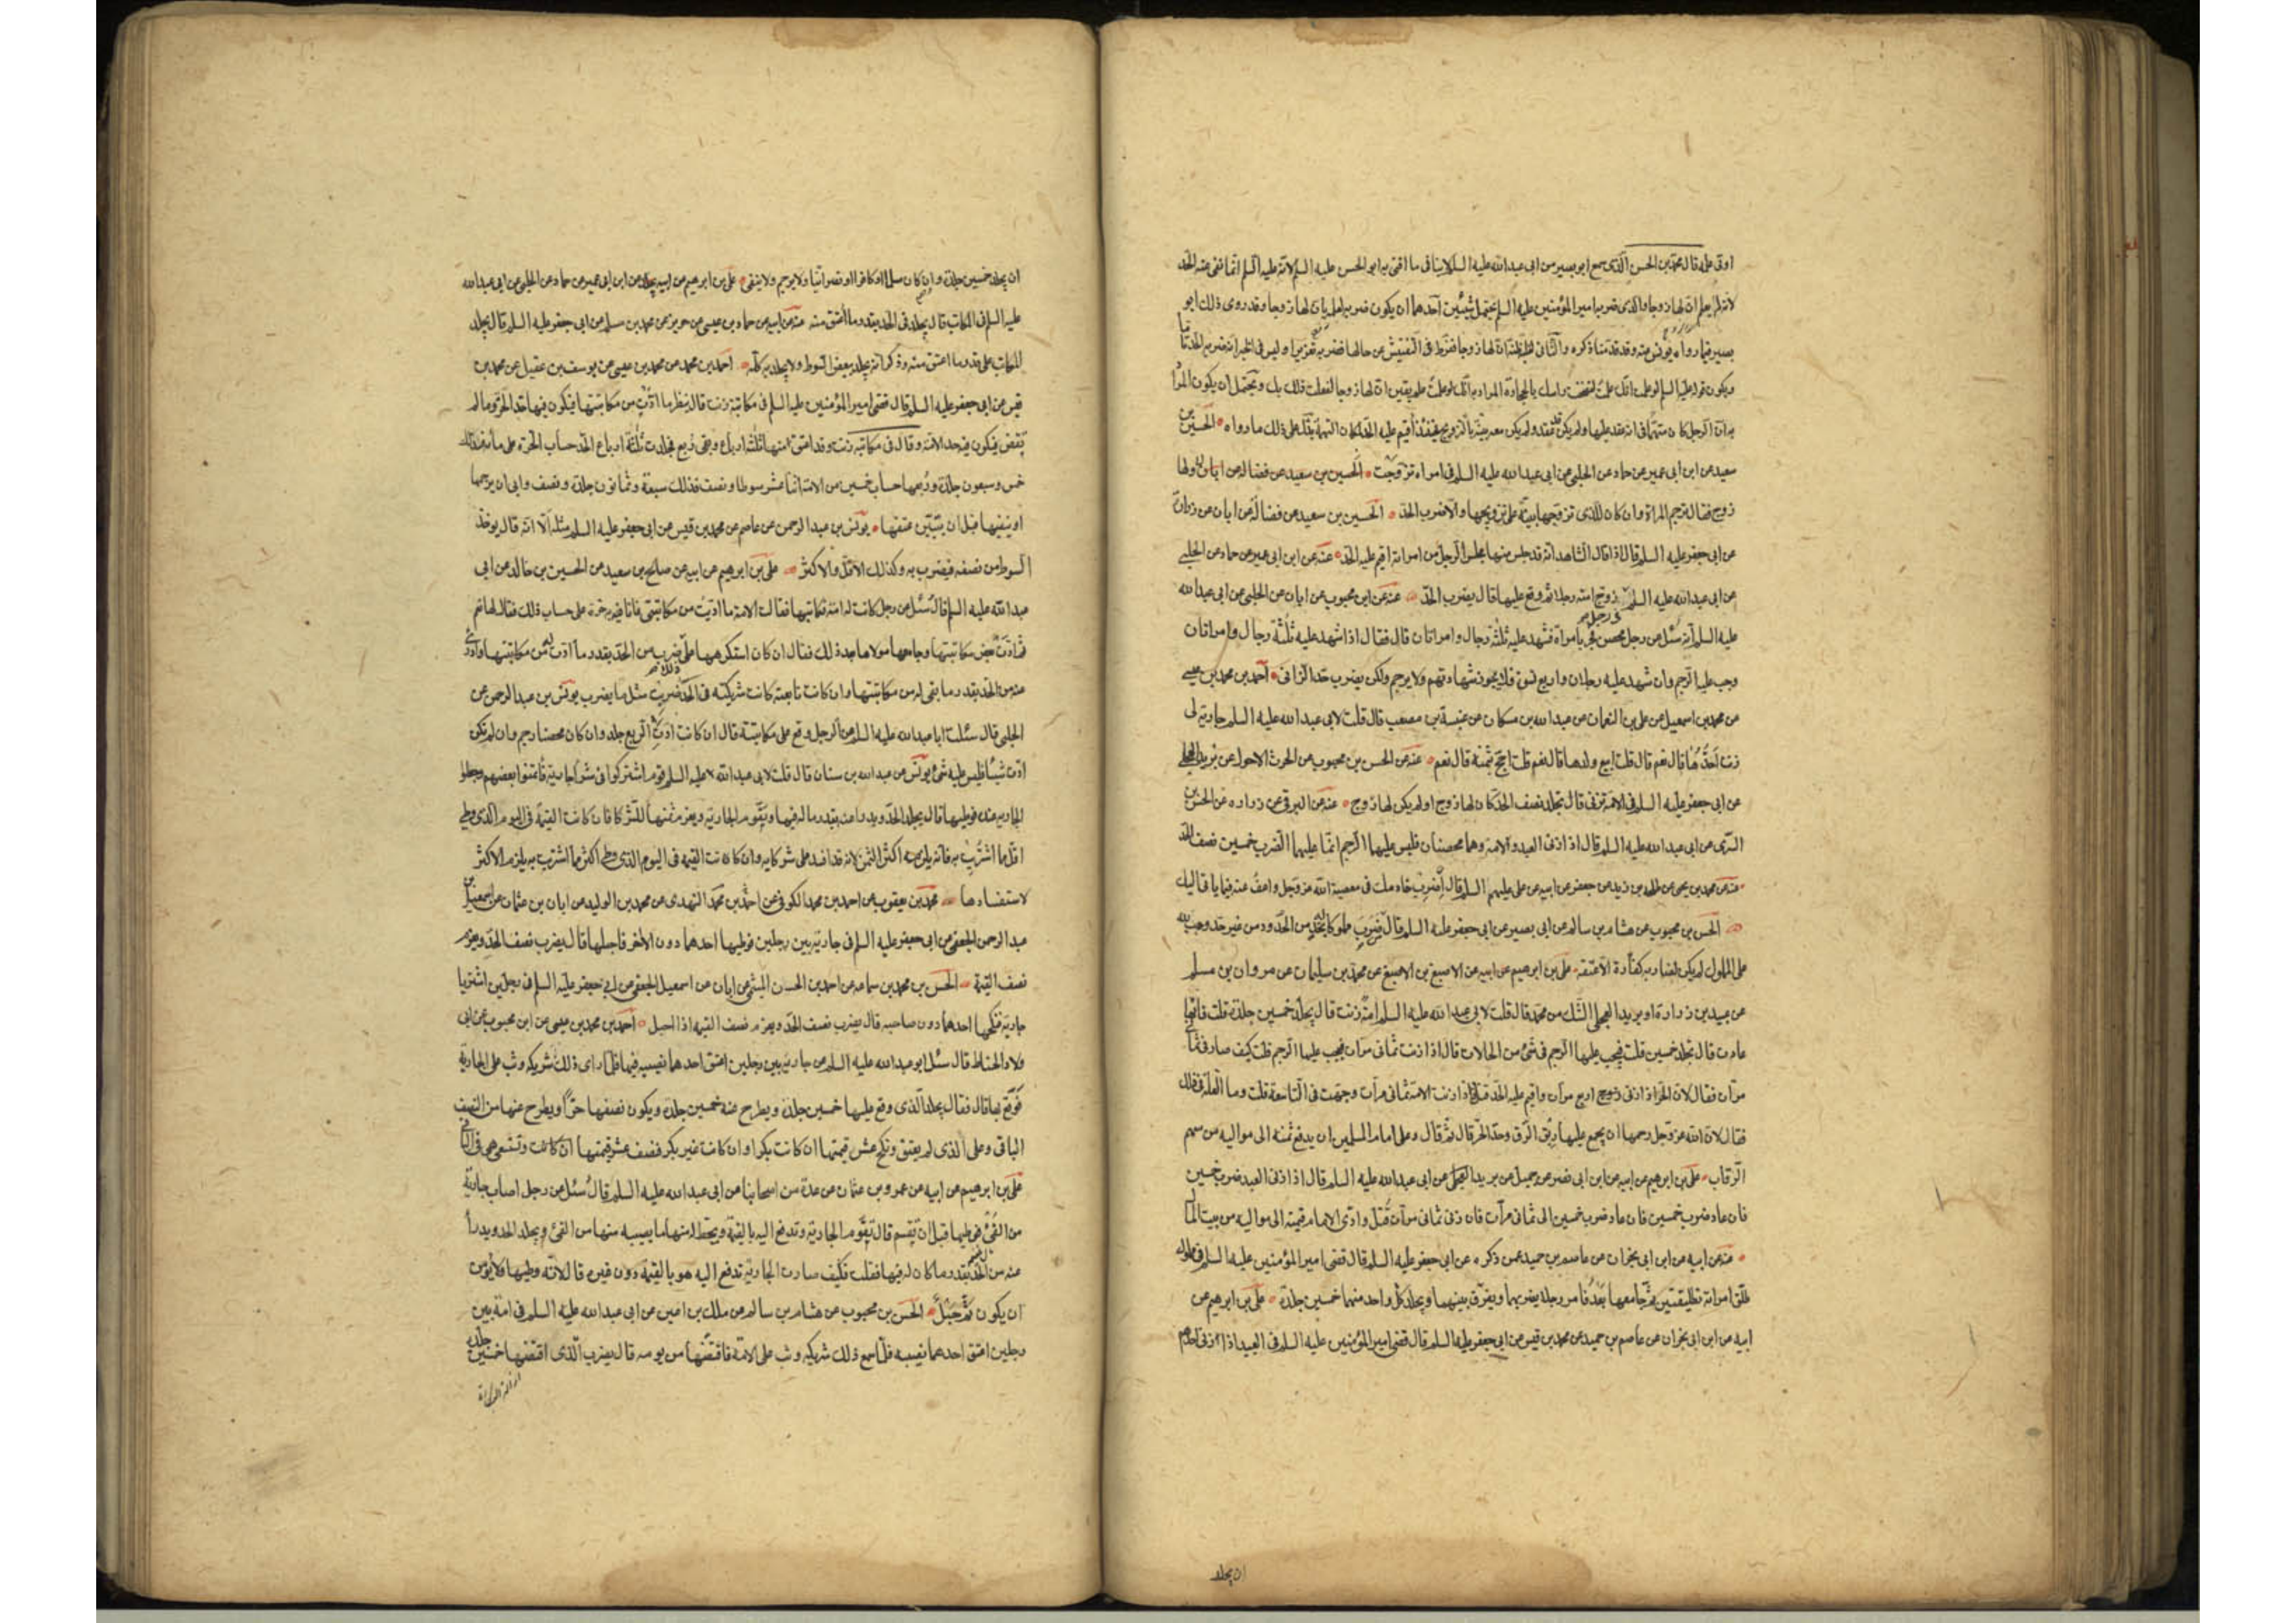 اوتى عليه قال محمد بن الحسن الذى سمع ابو بصير من ابى عبدالله عليه السلم لا ينافى ما افتى به ابو الحسن عليه السلم لانه عليه السلم انما نفى عنه الحد
لانه لم يعلم ان لها زوجا والذى ضربه امير المؤمنين عليه السلم يحتمل شيئين احدهما ان يكون ضربه لعلمه بان لها زوجا وقد روى ذلك ابو
بصير فيما رواه يونس عنه وقد قدمنا ذكره والثانى لغلبة ظنه ان لها زوجا ففرط فى التفتيش عن حالها فضربه تعزيرا وليس فى الخبر انه ضربه الحد تاما
ويكون قوله عليه السلم لو علمت انك علمت لفضخت راسك بالحجارة المراد به انك لو علمت علم يقين ان لها زوجا لفعلت ذلك بك ويحتمل ان يكون المراد
به ان الرجل كان متهما فى انه عقد عليها ولم يكن عقد ولم يكن معه بينة بالتزويج فحينئذ اقيم عليه الحد لمكان التهمة يدل على ذلك ما رواه الحسين بن
سعيد عن ابن ابى عمير عن حماد عن الحلبى عن ابى عبدالله عليه السلم فى امراة تزوجت ولها
زوج فقال ترجم المراة وان كان للذى تزوجها بينة على تزويجها والا ضرب الحد الحسين بن سعيد عن فضالة عن ابان عن زرارة
عن ابى جعفر عليه السلم قال اذا قال الشاهد انه قد جلس منها مجلس الرجل من امراته اقيم عليه الحد عنه عن ابن ابى عمير عن حماد عن الحلبى
عن ابى عبدالله عليه السلم فى رجل زوج امته رجلا ثم وقع عليها قال يضرب الحد عنه عن ابن محبوب عن ابان عن الحلبى عن ابى عبدالله
عليه السلم انه سئل عن رجل محصن فجر بامراة فشهد عليه ثلثة رجال وامراتان قال فقال اذا شهد عليه ثلثة رجال وامراتان
وجب عليه الرجم وان شهد عليه رجلان واربع نسوة فلا يجوز شهادتهم ولا يرجم ولكن يضرب حد الزانى احمد بن محمد بن عيسى
عن محمد بن اسمعيل عن على بن النعمان عن عبدالله بن مسكان عن عنبسة بن مصعب قال قلت لابى عبدالله عليه السلم جارية لى
زنت احدها قال نعم قال قلت ابيع ولدها قال نعم قلت احج بثمنه قال نعم عنه عن الحسن بن محبوب عن الحرث الاحول عن بريد العجلى
عن ابى جعفر عليه السلم فى الامة تزنى قال تجلد نصف الحد كان لها زوج او لم يكن لها زوج عنه عن البرقى عن زرارة عن الحسن بن
السرى عن ابى عبدالله عليه السلم قال اذا زنى العبد والامة وهما محصنان فليس عليهما الرجم انما عليهما الضرب خمسين نصف الحد
عنه عن محمد بن يحيى عن طلحة بن زيد عن جعفر عن ابيه عن على عليهم السلم قال اضرب خادمك فى معصية الله عز وجل واعف عنه فيما ياتى اليك
الحسن بن محبوب عن هشام بن سالم عن ابى بصير عن ابى جعفر عليه السلم قال من ضرب مملوكا له بحد من الحدود من غير حد وجب لله
على المملوك لم يكن لضاربه كفارة الا عتقه على بن ابرهيم عن ابيه عن الاصبغ بن الاصبغ عن محمد بن سليمان عن مروان بن مسلم
عن عبيد بن زرارة او بريد العجلى الشك من محمد قال قلت لابى عبدالله عليه السلم امة زنت قال تجلد خمسين جلدة قلت فانها
عادت قال تجلد خمسين قلت فيجب عليها الرجم فى شئ من الحالات قال اذا زنت ثمانى مرات يجب عليها الرجم قلت كيف صار فى ثمانى
مرات فقال لان الحر اذا زنى اربع مرات واقيم عليه الحد قتل فاذا زنت الامة ثمانى مرات رجمت فى التاسعة قلت وما العلة فى ذلك
فقال لان الله عز وجل رحمها ان يجمع عليها ربق الرق وحد الحر قال ثم قال وعلى امام المسلمين ان يدفع ثمنه الى مواليه من سهم
الرقاب على بن ابرهيم عن ابيه عن ابن ابى نصر عن جميل عن بريد العجلى عن ابى عبدالله عليه السلم قال اذا زنى العبد ضرب خمسين
فان عاد ضرب خمسين فان عاد ضرب خمسين الى ثمانى مرات فان زنى ثمانى مرات قتل وادى الامام قيمته الى مواليه من بيت المال
عنه عن ابيه عن ابن ابى نجران عن عاصم بن حميد عمن ذكره عن ابى جعفر عليه السلم قال قضى امير المؤمنين عليه السلم فى مملوك
طلق امراته تطليقتين ثم جامعها بعد فامر رجلا يضربهما ويفرق بينهما ويجلد كل واحد منهما خمسين جلدة على بن ابرهيم عن
ابيه عن ابن ابى نجران عن عاصم بن حميد عن محمد بن قيس عن ابى جعفر عليه السلم قال قضى امير المؤمنين عليه السلم فى العبيد اذا زنى احدهم
ان يجلد
ان يجلد خمسين جلدة وان كان مسلما او كافرا او نصرانيا ولا يرجم ولا ينفى على بن ابرهيم عن ابيه عن ابن ابى عمير عن حماد عن الحلبى عن ابى عبدالله
عليه السلم فى المكاتب قال يجلد فى الحد بقدر ما اعتق منه عنه عن ابيه عن حماد بن عيسى عن حريز عن محمد بن مسلم عن ابى جعفر عليه السلم قال يجلد
المكاتب على قدر ما اعتق منه وذكر انه يجلد ببعض السوط ولا يجلد به كله احمد بن محمد عن محمد بن عيسى عن يوسف بن عقيل عن محمد بن
قيس عن ابى جعفر عليه السلم قال قضى امير المؤمنين عليه السلم فى مكاتبة زنت قال ينظر ما ادت من مكاتبتها فيكون فيها حد الحرة وما لم
تقض فيكون فيه حد الامة وقال فى مكاتبة زنت وقد اعتق منها ثلثة ارباع وبقى ربع فجلدت ثلثة ارباع الحد حساب الحرة على مائة فذلك
خمس وسبعون جلدة وربعها حساب خمسين من الامة اثنا عشر سوطا ونصف فذلك سبعة وثمانون جلدة ونصف وابى ان يرجمها
او ينفيها قبل ان يتبين عتقها يونس بن عبد الرحمن عن عاصم عن محمد بن قيس عن ابى جعفر عليه السلم مثله الا انه قال يوخذ
السوط من نصفه فيضرب به وكذلك الاقل والاكثر على بن ابرهيم عن ابيه عن صالح بن سعيد عن الحسين بن خالد عن ابى
عبدالله عليه السلم قال سئل عن رجل كانت له امة فكاتبها فقالت الامة ما اديت من مكاتبتى فانا فيه حرة على حساب ذلك فقال لها نعم
فادت بعض مكاتبتها وجامعها مولاها بعد ذلك فقال ان كان استكرهها على ذلك ضرب من الحد بقدر ما ادت له من مكاتبتها وادرئ
عنه من الحد بقدر ما بقى له من مكاتبتها وان كانت تابعته كانت شريكته فى الحد ضربت مثل ما يضرب يونس بن عبد الرحمن عن
الحلبى قال سئلت ابا عبدالله عليه السلم عن الرجل وقع على مكاتبته قال ان كانت ادت الربع جلد وان كان محصنا رجم وان لم تكن
ادت شيئا فليس عليه شئ يونس عن عبدالله بن سنان قال قلت لابى عبدالله عليه السلم قوم اشتركوا فى شراء جارية فائتمنوا بعضهم وجعلوا
الجارية عنده فوطيها قال يجلد الحد ويدرا عنه بقدر ماله فيها وتقوم الجارية ويغرم ثمنها للشركاء فان كانت القيمة فى اليوم الذى وطى
اقل مما اشتريت به فانه يلزمه اكثر الثمن لانه قد افسد على شركايه وان كانت القيمة فى اليوم الذى وطى اكثر مما اشتريت به يلزم الاكثر
لاستفسادها محمد بن يعقوب عن احمد بن محمد الكوفى عن احمد بن محمد النهدى عن محمد بن الوليد عن ابان بن عثمان عن اسمعيل بن
عبد الرحمن الجعفى عن ابى جعفر عليه السلم فى جارية بين رجلين فوطيها احدهما دون الاخر فاحبلها قال يضرب نصف الحد ويغرم
نصف القيمة الحسن بن محمد بن سماعة عن احمد بن الحسن الميثمى عن ابان عن اسمعيل الجعفى عن ابى جعفر عليه السلم فى رجلين اشتريا
جارية فنكحها احدهما دون صاحبه قال يضرب نصف الحد ويغرم نصف القيمة اذا احبل احمد بن محمد بن عيسى عن ابن محبوب عن ابى
ولاد الحناط قال سئل ابو عبدالله عليه السلم عن جارية بين رجلين اعتق احدهما نصيبه فيها فلما راى ذلك شريكه وثب على الجارية
فوقع بها قال فقال يجلد الذى وقع عليها خمسين جلدة ويطرح عنه خمسين جلدة ويكون نصفها حرا ويطرح عنها من النصف
الباقى وعلى الذى لم يعتق ونكح عشر قيمتها ان كانت بكرا وان كانت غير بكر فنصف عشر قيمتها ان كانت وتستسعى هى فى الباقى
على بن ابرهيم عن ابيه عن عمرو بن عثمان عن عدة من اصحابنا عن ابى عبدالله عليه السلم قال سئل عن رجل اصاب جارية
من الفئ فوطيها قبل ان تقسم قال تقوم الجارية وتدفع اليه بالقيمة ويحط له منها ما يصيبه منها من الفئ ويجلد الحد ويدرا
عنه من الحد بقدر ما كان له فيها فقلت فكيف صارت الجارية تدفع اليه هو بالقيمة دون غيره قال لانه وطيها فلا يؤمن
ان يكون ثم حبل الحسن بن محبوب عن هشام بن سالم عن ملك بن اعين عن ابى عبدالله عليه السلم فى امة بين
رجلين اعتق احدهما نصيبه فلما سمع ذلك شريكه وثب على الامة فاقتضها من يومه قال يضرب الذى اقتضها خمسين جلدة